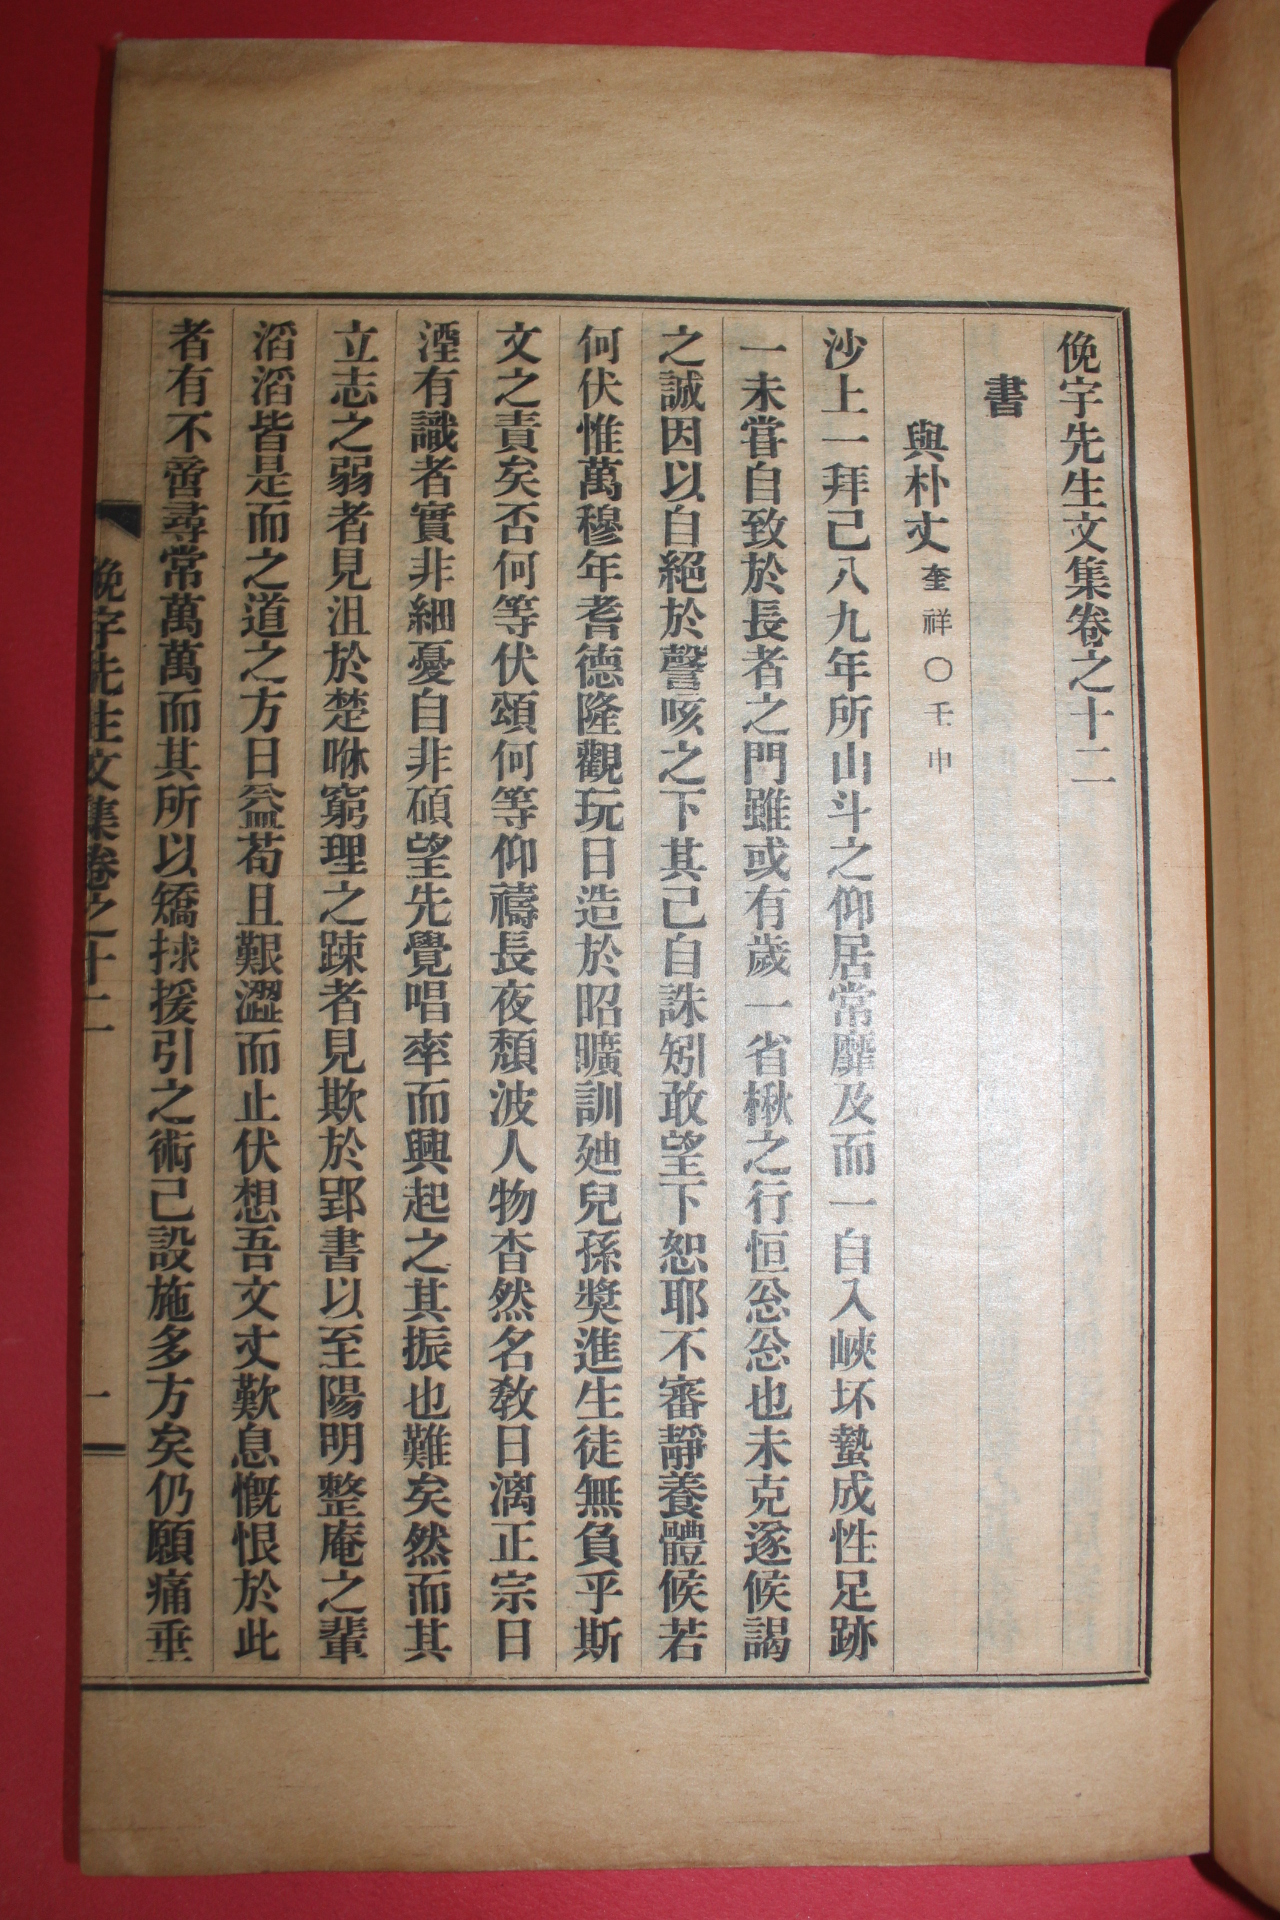 俛宇先生文集卷之十二
書
與朴丈奎祥○壬申
沙上一拜已八九年所山斗之仰居常靡及而一自入峽坏蟄成性足跡
一未嘗自致於長者之門雖或有歲一省楸之行恒忩忩也未克遂候謁
之誠因以自絕於謦咳之下其已自誅矧敢望下恕耶不審靜養體候若
何伏惟萬穆年耆德隆觀玩日造於昭曠訓廸兒孫奬進生徒無負乎斯
文之責矣否何等伏頌何等仰禱長夜頹波人物杳然名敎日漓正宗日
湮有識者實非細憂自非碩望先覺唱率而興起之其振也難矣然而其
立志之弱者見沮於楚咻窮理之踈者見欺於郢書以至陽明整庵之輩
滔滔皆是而之道之方日益苟且艱澀而止伏想吾文丈歎息慨恨於此
者有不啻尋常萬萬而其所以矯捄援引之術已設施多方矣仍願痛垂
俛宇先生文集卷之十二
一